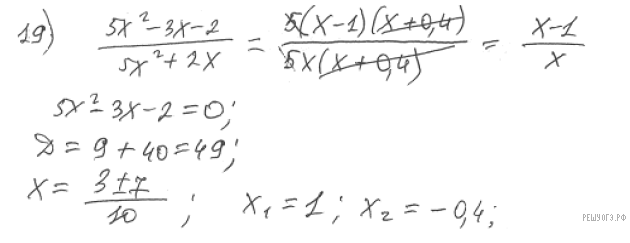 19) (5x² − 3x − 2)/(5x² + 2x) = (5(x−1)(x+0,4))/(5x(x+0,4)) = (x−1)/x
5x² − 3x − 2 = 0;
D = 9 + 40 = 49;
x = (3 ± 7)/10 ; x₁ = 1 ; x₂ = −0,4;
РЕШУОГЭ.РФ